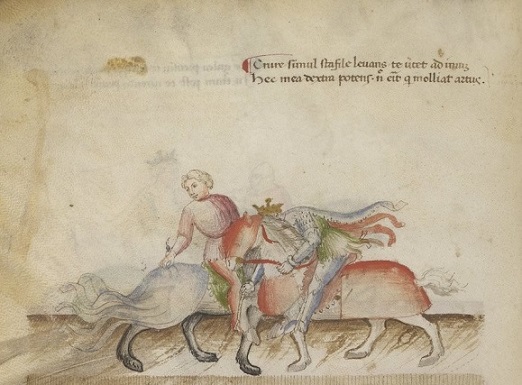 Crure simul stafile levans · te v̾tet ad imuʒ
Hec mea dextra potens · n̄ eīt q̇ molliat artus.